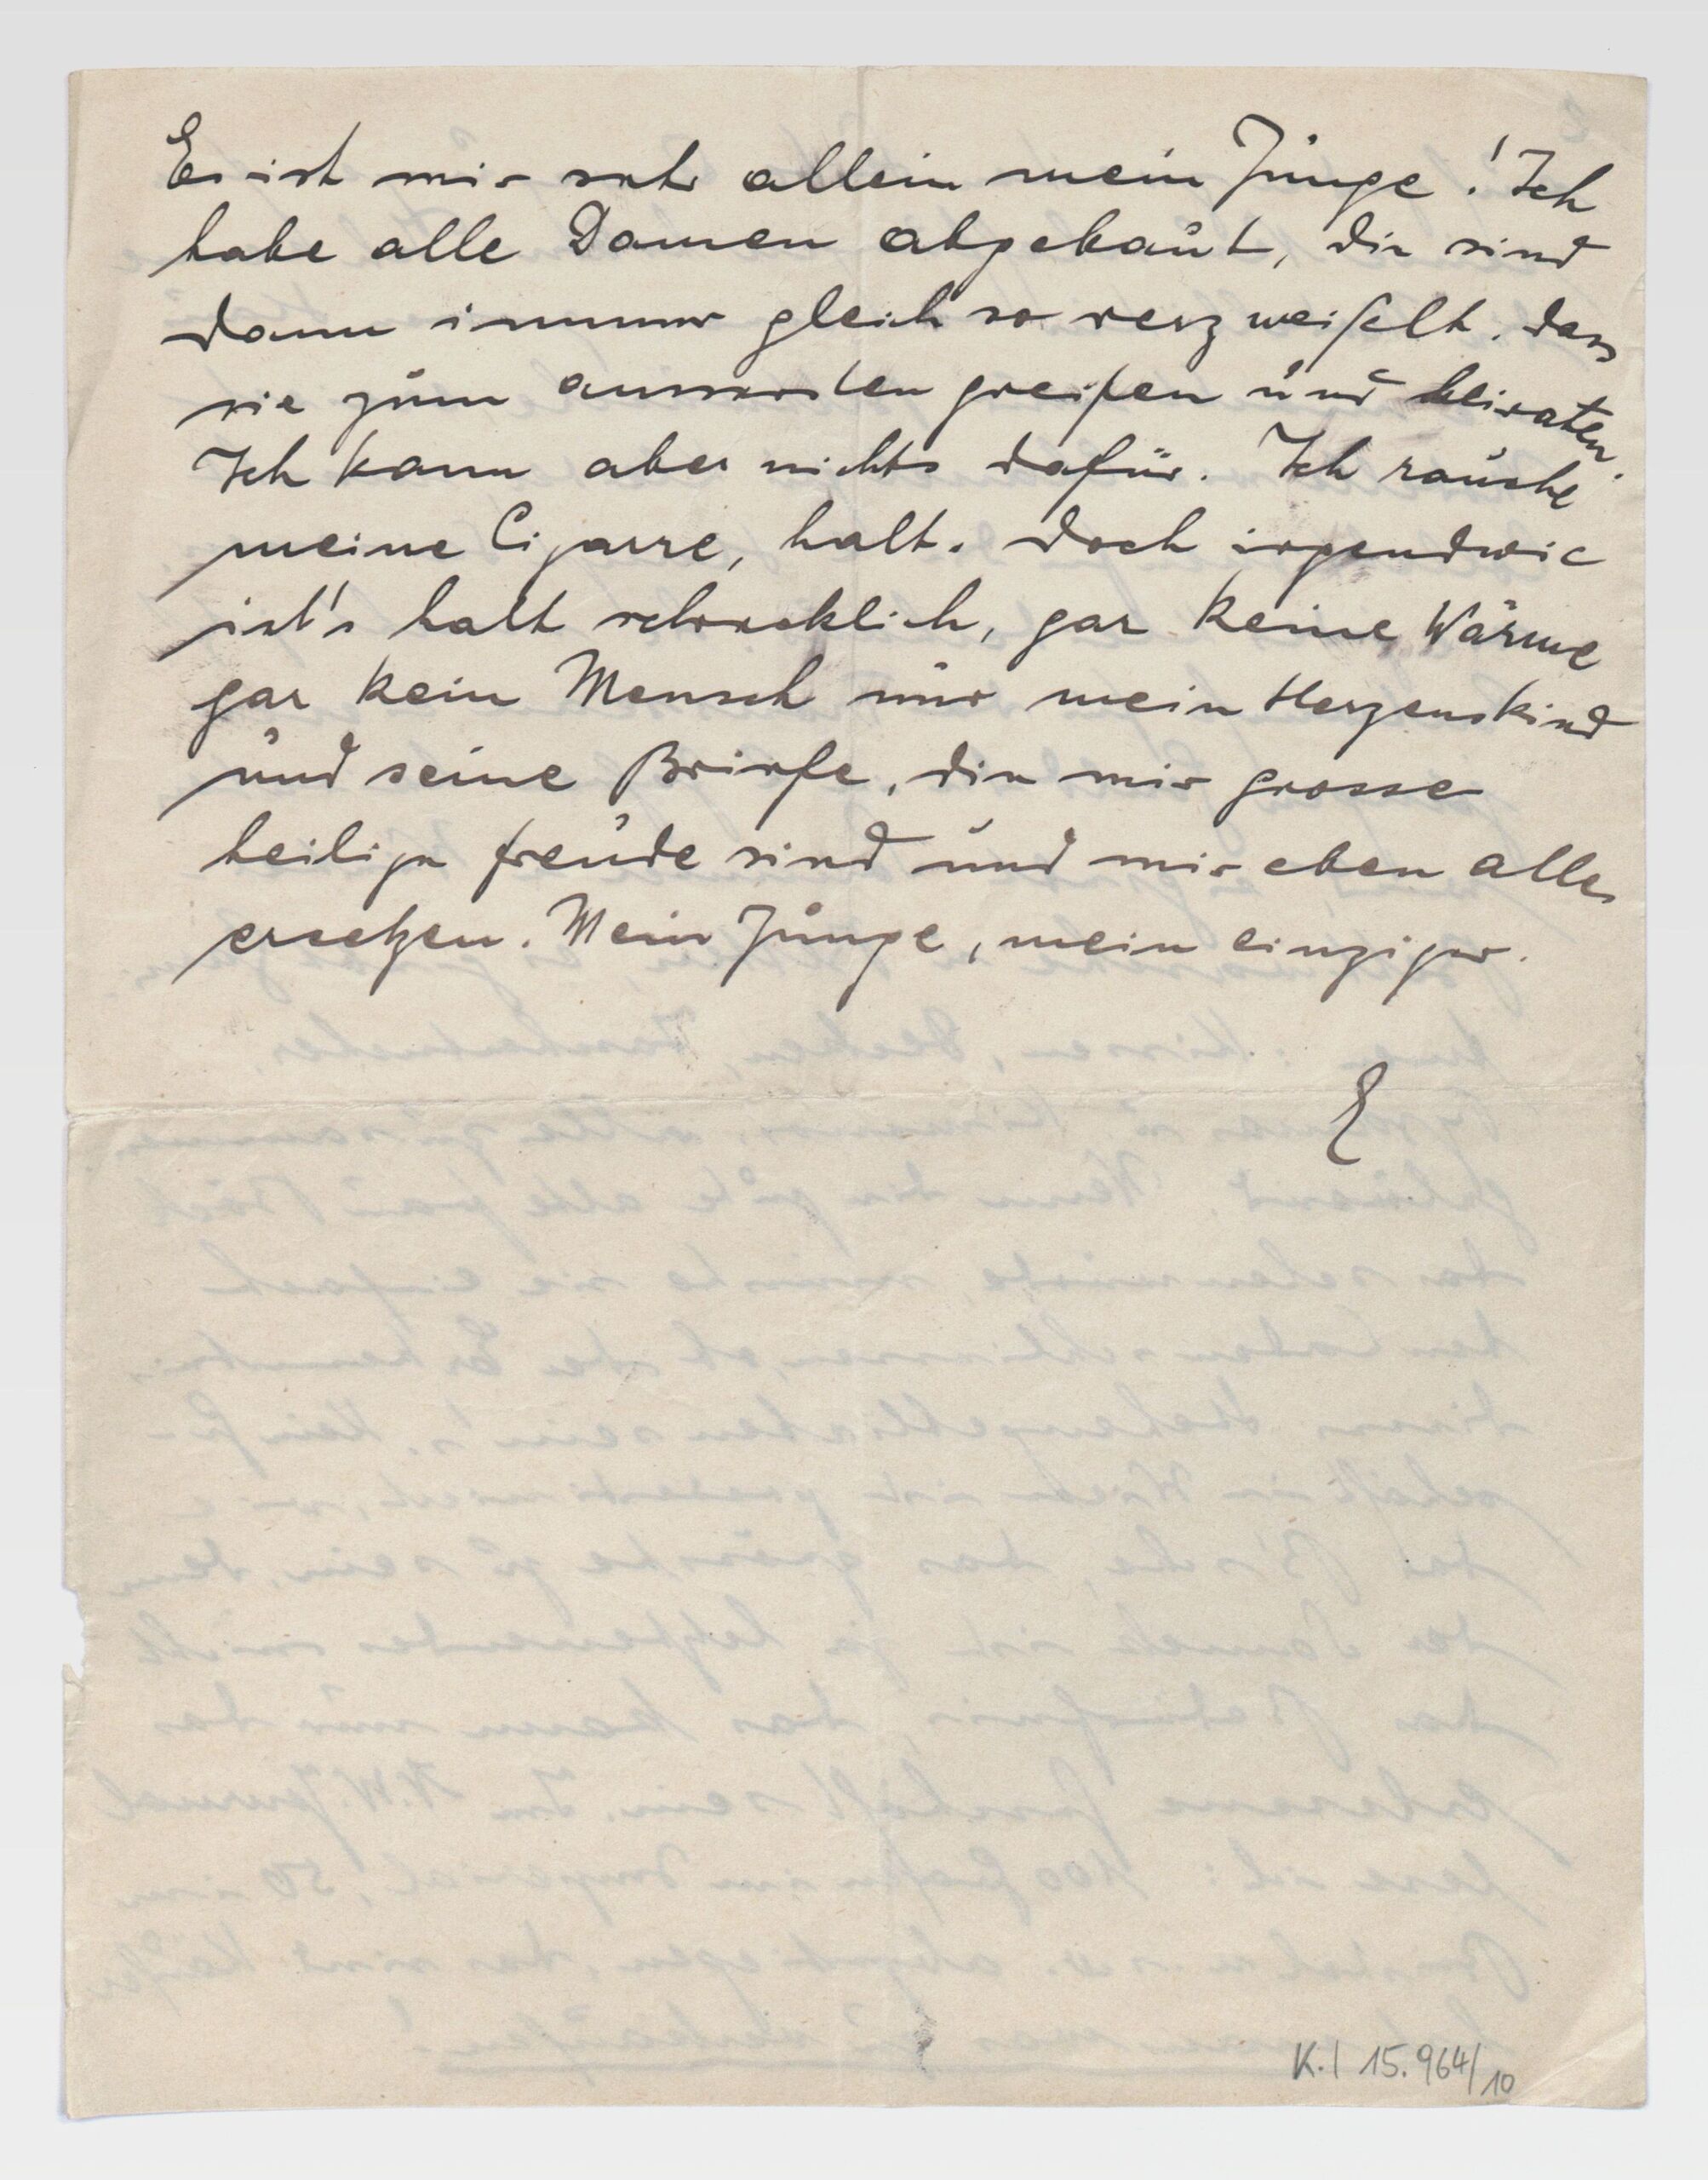 Es ist mir sehr allein mein Junge! Ich
habe alle Damen abgebaut, die sind
dann immer gleich so verzweifelt, dass
sie zum aussersten greifen und heiraten.
Ich kann aber nichts dafür. Ich rauche
meine Cigarre, halt. Doch irgendwie
ist's halt schrecklich, gar keine Wärme
gar kein Mensch nur mein Herzenskind
und seine Briefe, die mir grosse
heilige Freude sind und mir eben alles
ersetzen. Mein Junge, mein einziger.
E
K.I 15.964/10